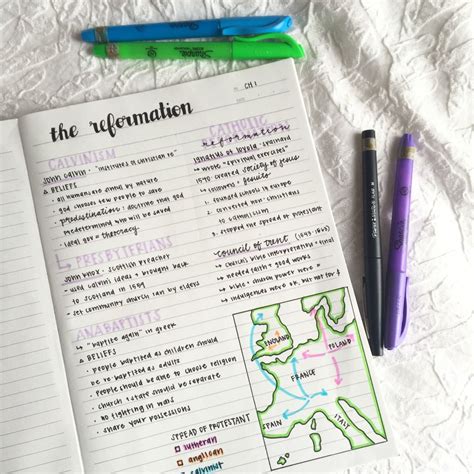 CH 1
the reformation
CALVINISM
JOHN CALVIN - "institutes of christian re"
& BELIEFS
• all humans are sinful by nature
• god chooses few people to save
• predestination: doctrine that god
predetermined who will be saved
• ideal gov = theocracy
PRESBYTERIANS
JOHN KNOX: Scottish preacher
→ used calvin's ideas + brought back
to scotland in 1559
• set community church ran by elders
ANABAPTISTS
→ "baptize again" in greek
& BELIEFS
• people baptized as children should
be re-baptized as adults
• people should be able to choose religion
• church + state should be separate
• no fighting in wars
• share your possessions
SPREAD OF PROTESTANT
lutheran
anglican
calvinist
CATHOLIC
reformation
ignatius of loyola: spaniard
→ wrote "spiritual exercises"
→ 1540 created society of jesus
jesuits
founded schools in europe
2. converted non-christians
to catholicism
3. stopped the spread of protestant
council of trent (1545-1563)
→ church's bible interpretation = final
→ needed faith + good works
→ bible + church power
→ indulgences ok but not for $
ENGLAND
POLAND
FRANCE
SPAIN
ITALY
Sharpie